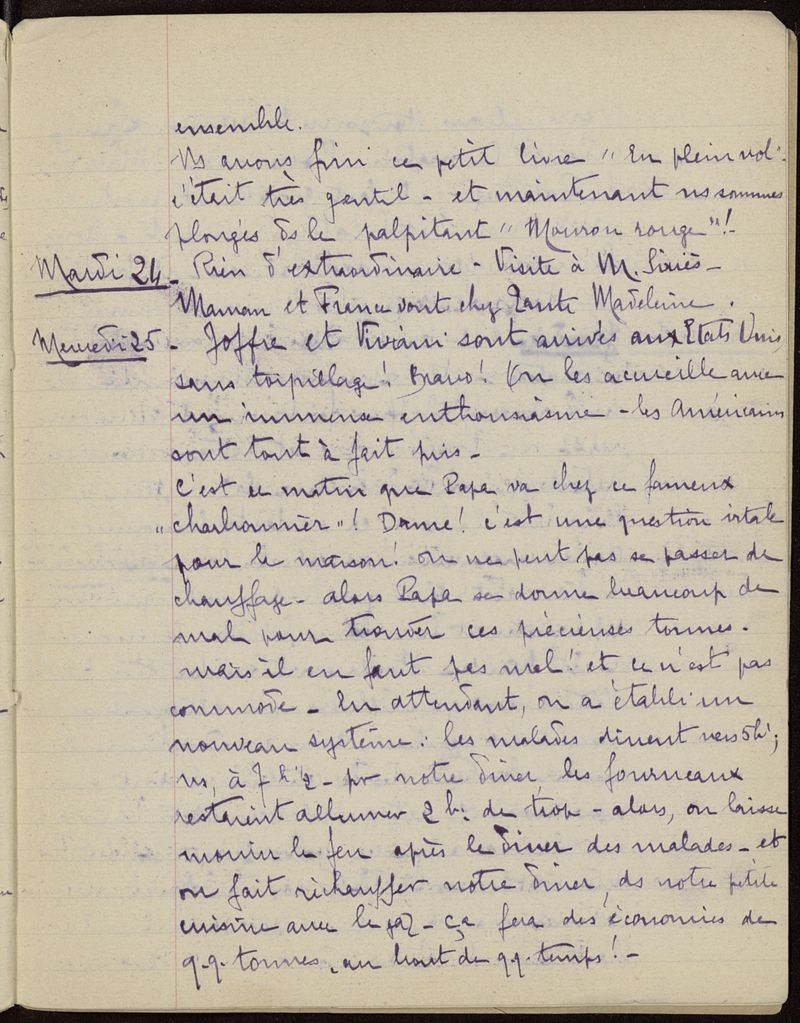 ensemble.
Ns avons fini ce petit livre "En plein vol".
c'était très gentil - et maintenant ns sommes
plongés ds le palpitant "Mouron rouge"!-
Mardi 24 - Rien d'extraordinaire - Visite à M. 
Maman et France vont chez Tante Madeleine.
Mercredi 25 - Joffre et Viviani sont arrivés aux Etats Unis
sans torpillage! Bravo! On les accueille avec
un immense enthousiasme - les Américains
sont tout à fait pris -
C'est ce matin que Papa va chez ce fameux
"charbonnier"! Dame! c'est une question vitale
pour la maison! on ne peut pas se passer de
chauffage - alors Papa se donne beaucoup de
mal pour trouver ces précieuses tonnes.
mais il en faut pas mal! et ce n'est pas
commode - En attendant, on a établi un
nouveau système: les malades dînent vers 5h;
ns, à 7h 1/2 - pr notre dîner, les fourneaux
restaient allumer 2h. de trop - alors, on laisse
mourir le feu après le dîner des malades - et
on fait réchauffer notre dîner, ds notre petite
cuisine avec le gaz - ça fera des économies de
q.q. tonnes, au bout de q.q. temps! -